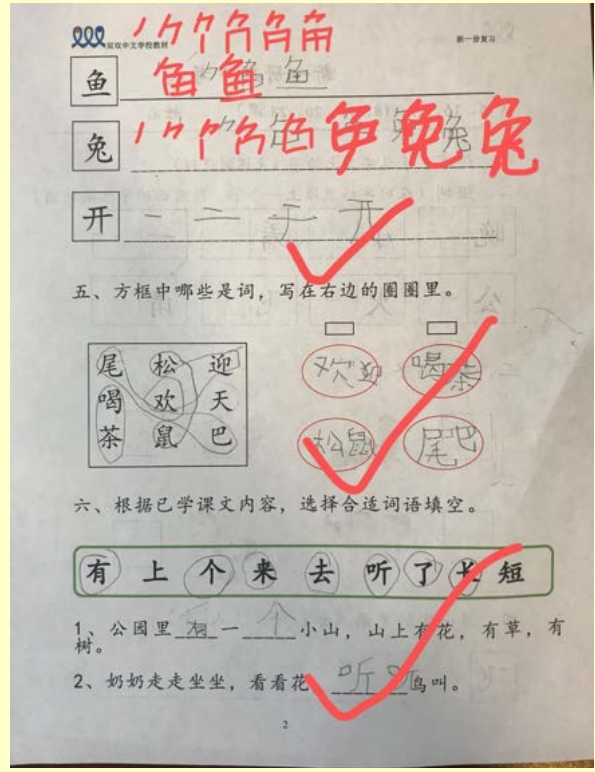 双双中文学校教材 新一册复习
鱼
兔
开 一 二 于 开
五、方框中哪些是词，写在右边的圈圈里。
尾 松 迎
喝 欢 天
茶 鼠 巴
欢迎 喝茶
松鼠 尾巴
六、根据已学课文内容，选择合适词语填空。
有 上 个 来 去 听 了 长 短
1、公园里 有 一 个 小山，山上有花，有草，有
树。
2、奶奶走走坐坐，看看花 听听 鸟叫。
2